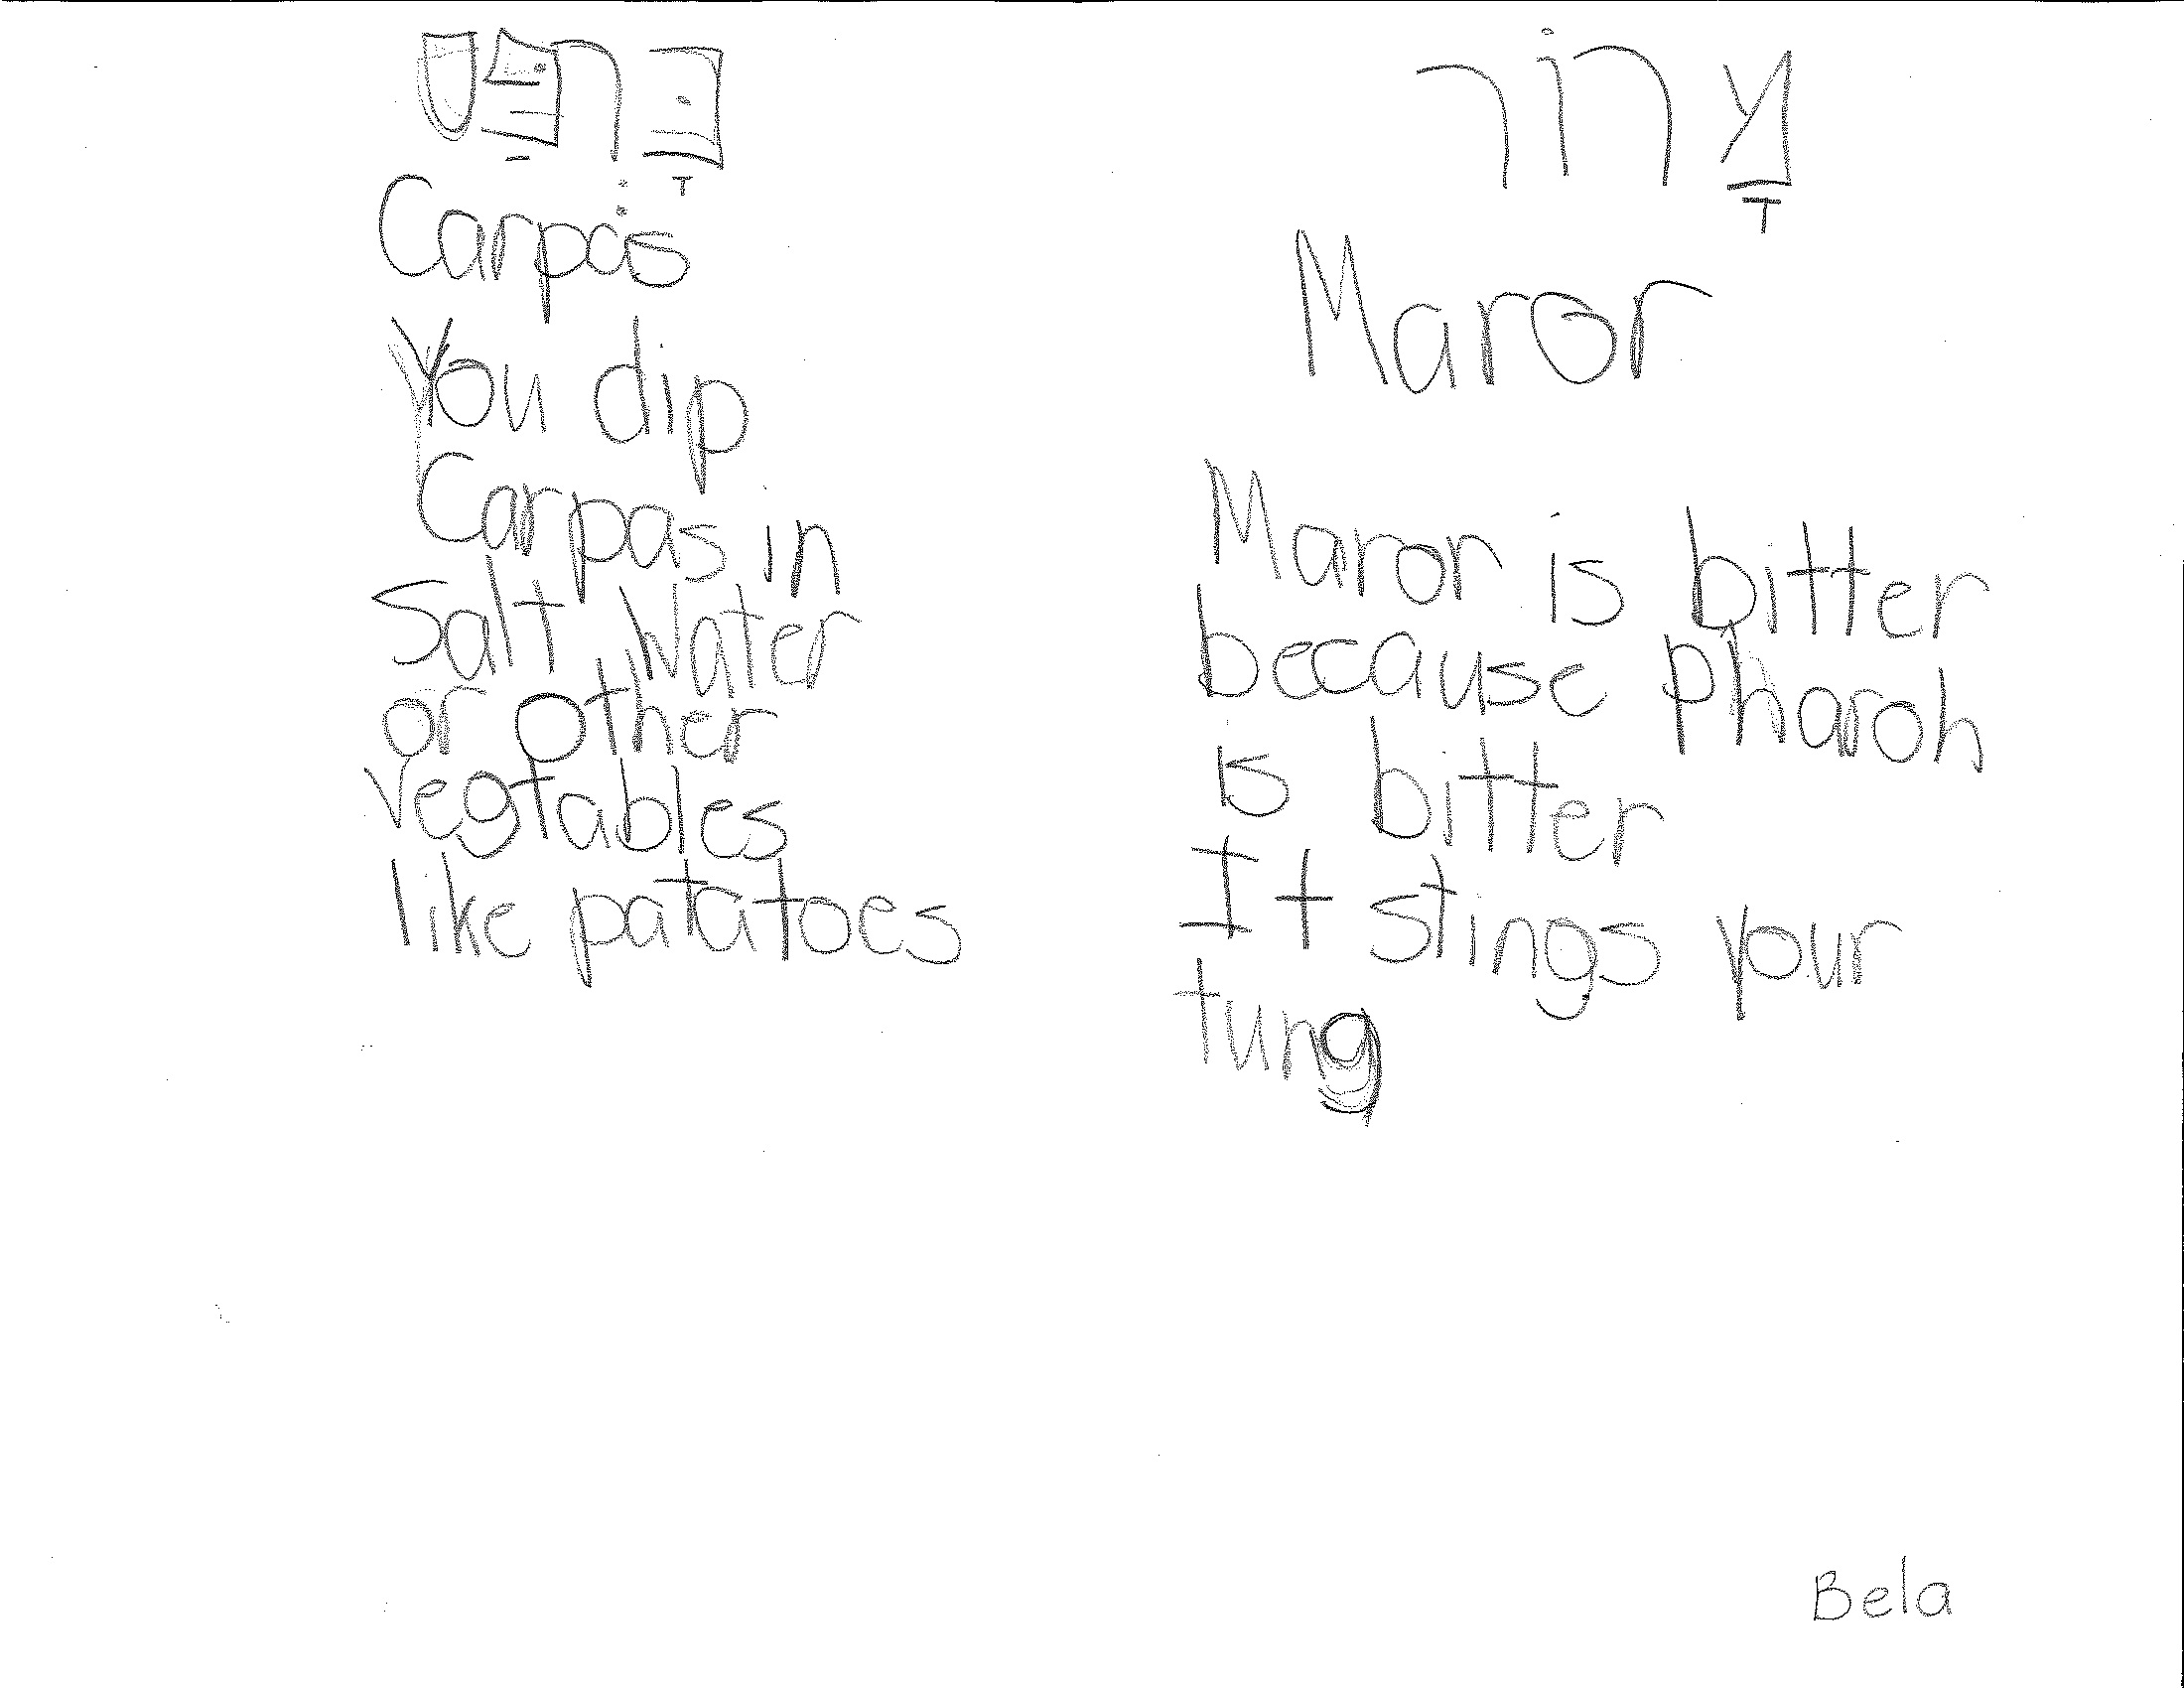 כַּרְפַּס
Carpas
You dip
Carpas in
Salt Water
or other
vegtables
like patatoes
מָרוֹר
Maror
Maror is bitter
because Pharoh
is bitter
It stings your
tung
Bela